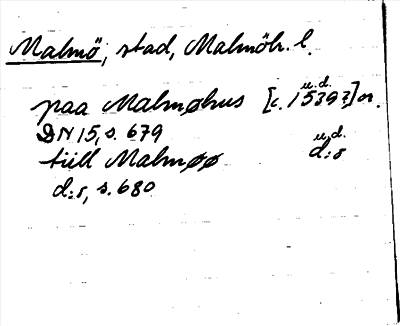 Malmö, stad, Malmöh. l.
paa Malmøhus [c. 1539?] or. u.d.
DN 15, s. 679
till Malmøø d:s u.d.
d:s, s. 680